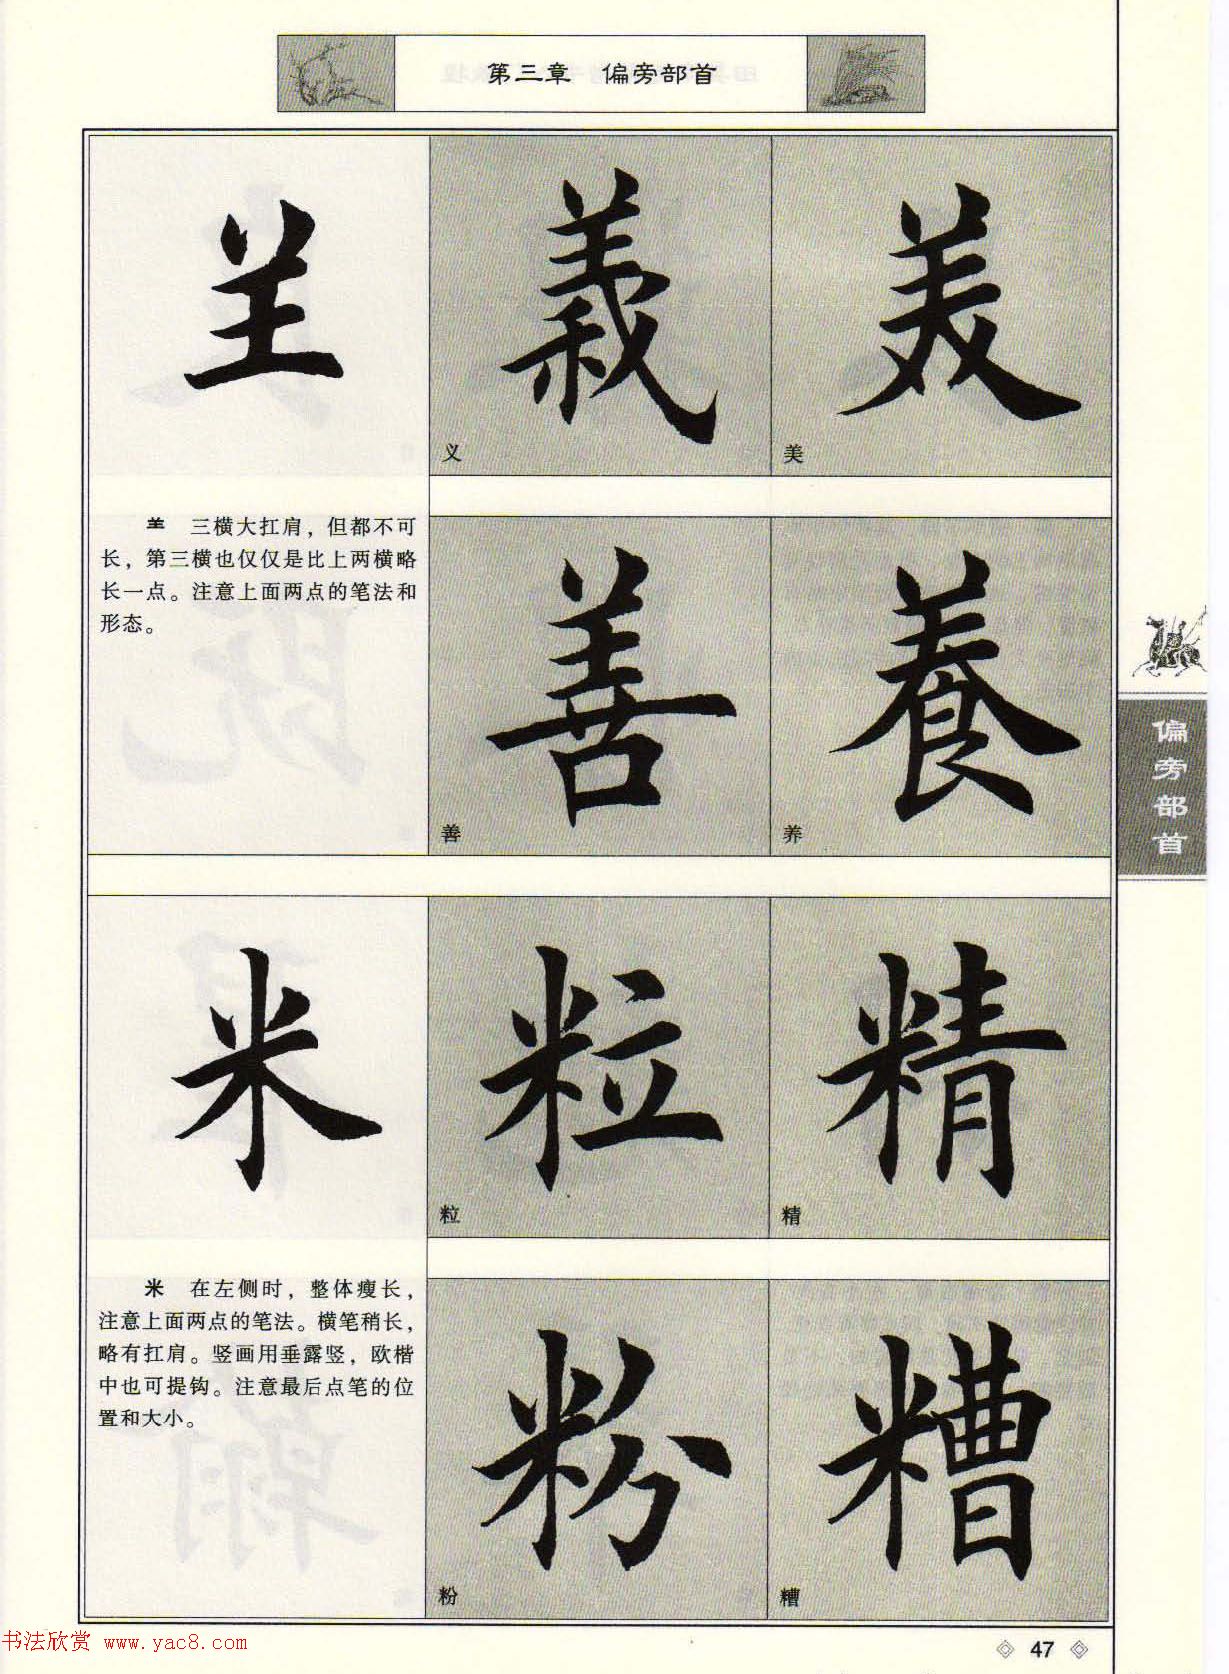 第三章 偏旁部首
𦍌 義 美
义 美
⺷ 三横大扛肩，但都不可
长，第三横也仅仅是比上两横略
长一点。注意上面两点的笔法和
形态。
善 養
善 养
偏旁部首
米 粒 精
粒 精
米 在左侧时，整体瘦长，
注意上面两点的笔法。横笔稍长，
略有扛肩。竖画用垂露竖，欧楷
中也可提钩。注意最后点笔的位
置和大小。
粉 糟
粉 糟
书法欣赏 www.yac8.com
47